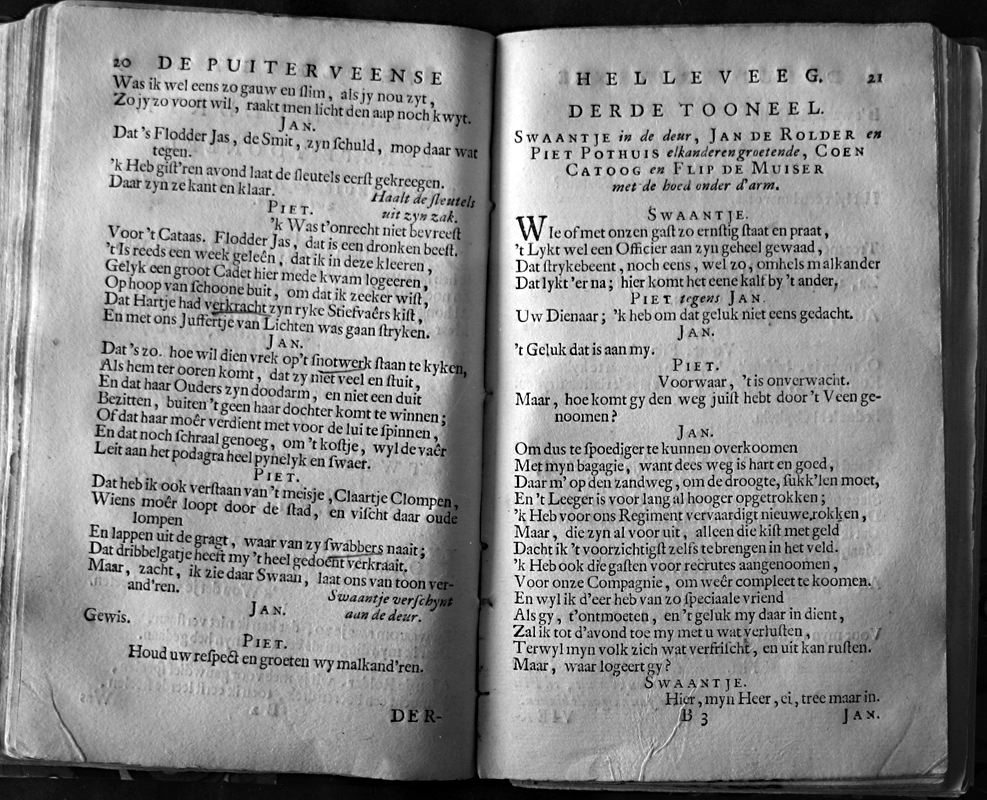 20 DE PUITERVEENSE
Was ik wel eens zo gauw en ſlim, als jy nou zyt,
Zo jy zo voort wil, raakt men licht den aap noch kwyt.
JAN.
Dat 's Flodder Jas, de Smit, zyn ſchuld, mop daar wat
tegen.
'k Heb giſt'ren avond laat de ſleutels eerſt gekreegen.
Daar zyn ze kant en klaar. Haalt de ſleutels
PIET. uit zyn zak.
'k Was t'onrecht niet bevreeſt
Voor 't Cataas. Flodder Jas, dat is een dronken beeſt.
't Is reeds een week geleên, dat ik in deze kleeren,
Gelyk een groot Cadet hier mede kwam logeeren,
Op hoop van ſchoone buit, om dat ik zeeker wiſt,
Dat Hartje had verkracht zyn ryke Stiefvaêrs kiſt,
En met ons Juffertje van Lichten was gaan ſtryken.
JAN.
Dat 's zo. hoe wil dien vrek op 't ſnotwerk ſtaan te kyken,
Als hem ter ooren komt, dat zy niet veel en ſtuit,
En dat haar Ouders zyn doodarm, en niet een duit
Bezitten, buiten 't geen haar dochter komt te winnen;
Of dat haar moêr verdient met voor de lui te ſpinnen,
En dat noch ſchraal genoeg, om 't koſtje, wyl de vaêr
Leit aan het podagra heel pynelyk en ſwaer.
PIET.
Dat heb ik ook verſtaan van 't meisje, Claartje Clompen,
Wiens moêr loopt door de ſtad, en viſcht daar oude
lompen
En lappen uit de gragt, waar van zy ſwabbers naait;
Dat dribbelgatje heeft my 't heel gedoent verkraait.
Maar, zacht, ik zie daar Swaan, laat ons van toon ver-
and'ren. Swaantje verſchynt
JAN. aan de deur.
Gewis.
PIET.
Houd uw reſpect en groeten wy malkand'ren.
DER-
HELLEVEEG. 21
DERDE TOONEEL.
SWAANTJE in de deur, JAN DE ROLDER en
PIET POTHUIS elkanderen groetende, COEN
CATOOG en FLIP DE MUISER
met de hoed onder d'arm.
SWAANTJE.
WIe of met onzen gaſt zo ernſtig ſtaat en praat,
't Lykt wel een Officier aan zyn geheel gewaad,
Dat ſtrykebeent, noch eens, wel zo, omhels malkander
Dat lykt 'er na; hier komt het eene kalf by 't ander.
PIET tegens JAN.
Uw Dienaar; 'k heb om dat geluk niet eens gedacht.
JAN.
't Geluk dat is aan my.
PIET.
Voorwaar, 't is onverwacht.
Maar, hoe komt gy den weg juiſt hebt door 't Veen ge-
noomen?
JAN.
Om dus te ſpoediger te kunnen overkoomen
Met myn bagagie, want dees weg is hart en goed,
Daar m' op den zandweg, om de droogte, ſukk'len moet,
En 't Leeger is voor lang al hooger opgetrokken;
'k Heb voor ons Regiment vervaardigt nieuwe rokken,
Maar, die zyn al voor uit, alleen die kiſt met geld
Dacht ik 't voorzichtigſt zelfs te brengen in het veld.
'k Heb ook die gaſten voor recrutes aangenoomen,
Voor onze Compagnie, om weêr compleet te koomen.
En wyl ik d'eer heb van zo ſpeciaale vriend
Als gy, t'ontmoeten, en 't geluk my daar in dient,
Zal ik tot d'avond toe my met u wat verluſten,
Terwyl myn volk zich wat verfriſcht, en uit kan ruſten.
Maar, waar logeert gy?
SWAANTJE.
Hier, myn Heer, ei, tree maar in.
B 3 JAN.